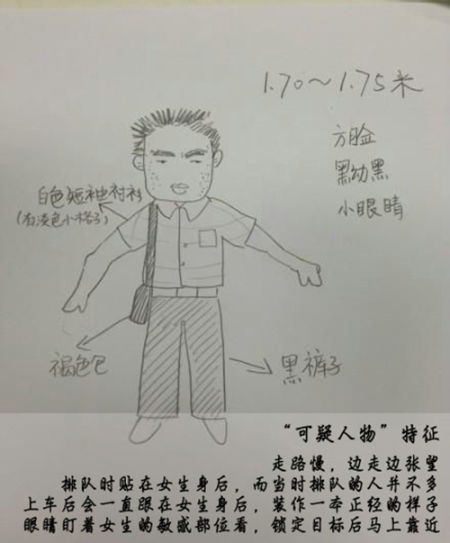 1.70～1.75米
方脸
黝黑
小眼睛
白色短袖衬衫
(有浅色小格子)
褐色包
黑裤子
“可疑人物”特征
走路慢，边走边张望
排队时贴在女生身后，而当时排队的人并不多
上车后会一直跟在女生身后，装作一本正经的样子
眼睛盯着女生的敏感部位看，锁定目标后马上靠近